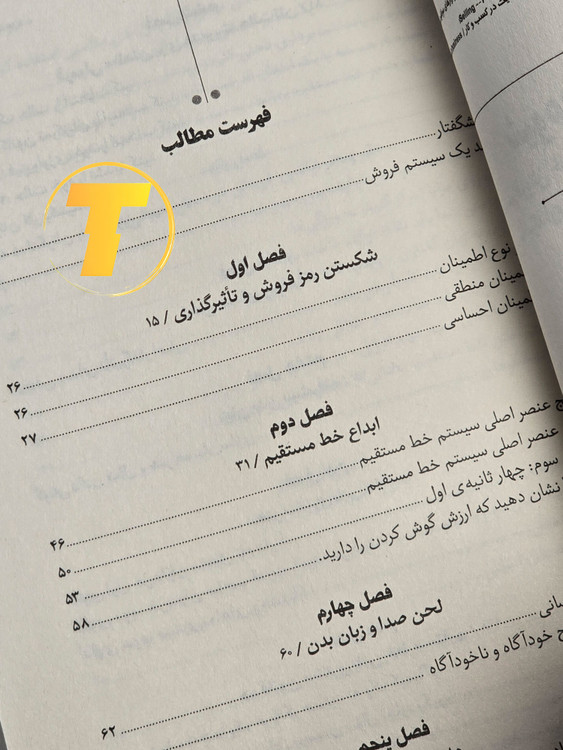 Selling
فهرست مطالب
یک سیستم فروش
فصل اول
شکستن رمز فروش و تأثیرگذاری / ۱۵
نوع اطمینان ۲۶
منطقی ۲۶
احساسی ۲۷
فصل دوم
ابداع خط مستقیم / ۳۱
عنصر اصلی سیستم خط مستقیم ۴۶
عنصر اصلی سیستم خط مستقیم ۵۰
سوم: چهار ثانیه‌ی اول ۵۳
نشان دهید که ارزش گوش کردن را دارید. ۵۸
فصل چهارم
لحن صدا و زبان بدن / ۶۰
خودآگاه و ناخودآگاه ۶۲
فصل پنجم
T